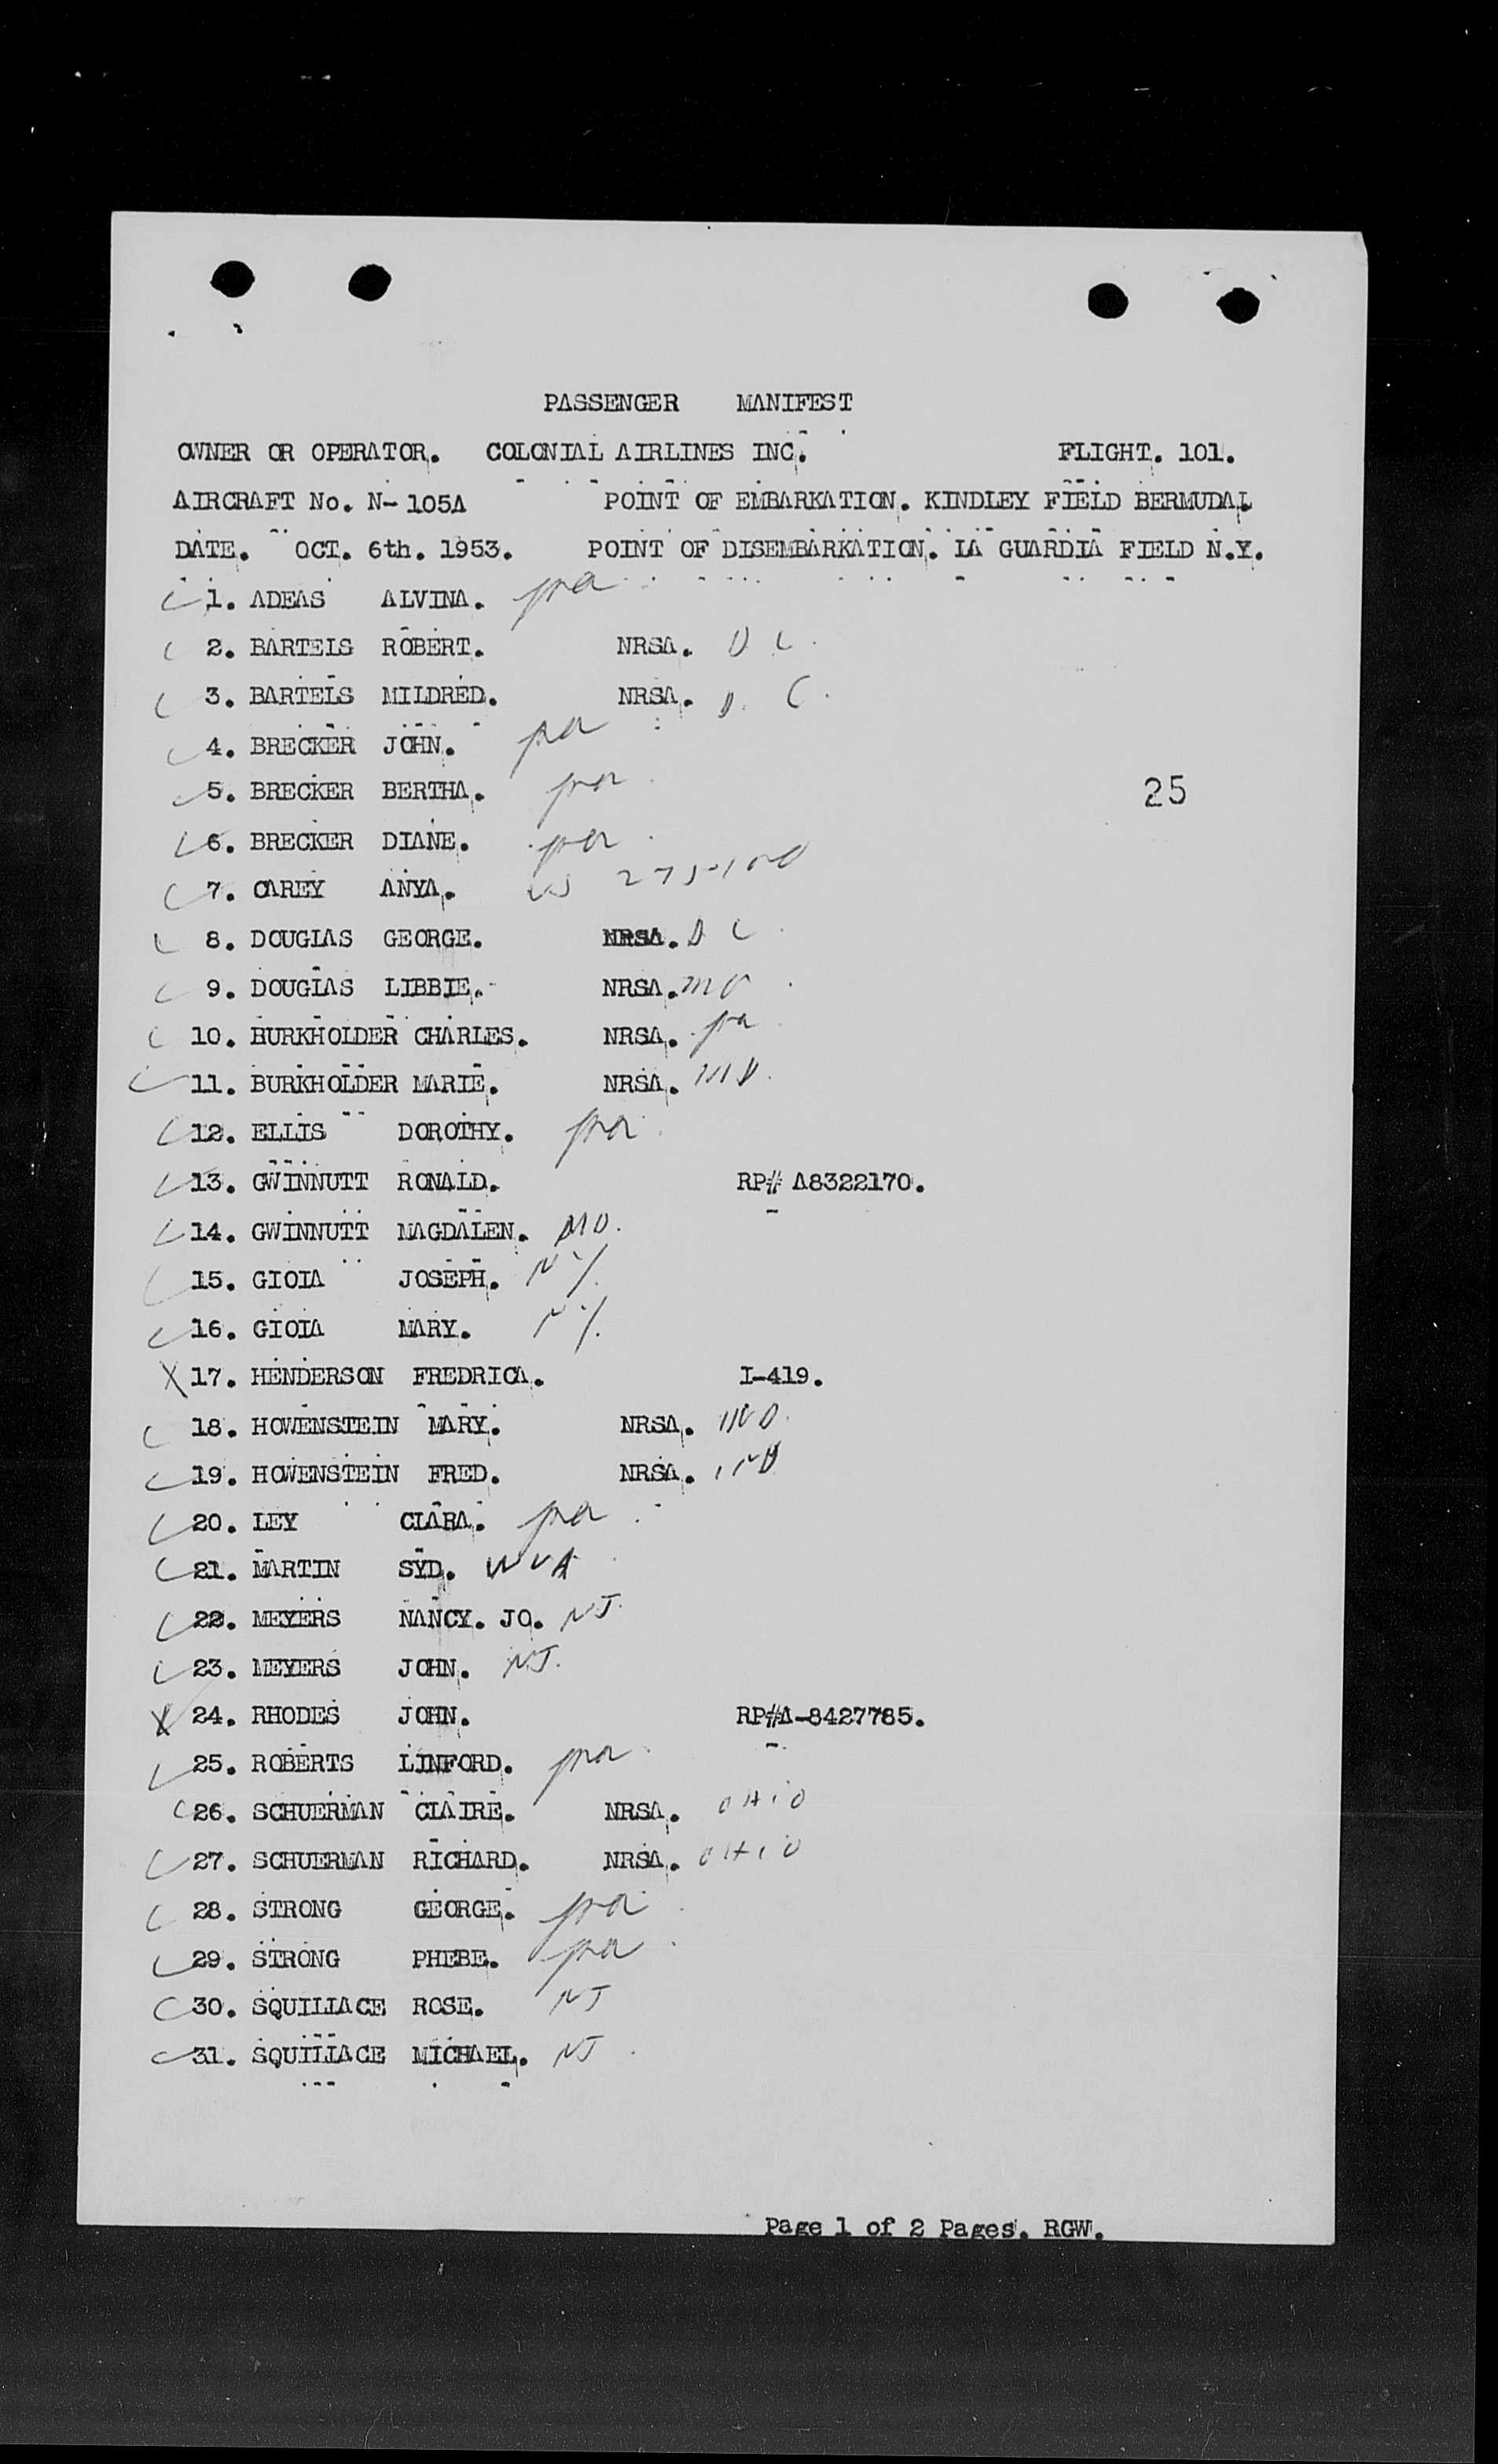 PASSENGER MANIFEST
OWNER OR OPERATOR. COLONIAL AIRLINES INC. FLIGHT. 101.
AIRCRAFT No. N-105A POINT OF EMBARKATION. KINDLEY FIELD BERMUDA.
DATE. OCT. 6th. 1953. POINT OF DISEMBARKATION. LA GUARDIA FIELD N.Y.
1. ADEAS ALVINA. pa
2. BARTELS ROBERT. NRSA. D C.
3. BARTELS MILDRED. NRSA. D. C.
4. BRECKER JOHN. pa
5. BRECKER BERTHA. pa
25
6. BRECKER DIANE. pa
7. CAREY ANYA.
8. DOUGLAS GEORGE. NRSA. D C
9. DOUGLAS LIBBIE. NRSA.
10. BURKHOLDER CHARLES. NRSA. pa
11. BURKHOLDER MARIE. NRSA. MD.
12. ELLIS DOROTHY. pa
13. GWINNUTT RONALD. RP# A8322170.
14. GWINNUTT MAGDALEN. MD.
15. GIOIA JOSEPH. NY.
16. GIOIA MARY. NY.
X 17. HENDERSON FREDRICA. I-419.
18. HOWENSTEIN MARY. NRSA. IND.
19. HOWENSTEIN FRED. NRSA. IND
20. LEY CLARA. pa
21. MARTIN SYD. W VA
22. MEYERS NANCY. JO. NJ.
23. MEYERS JOHN. NJ.
X 24. RHODES JOHN. RP#A-8427785.
25. ROBERTS LINFORD. pa
26. SCHUERMAN CLAIRE. NRSA. OHIO
27. SCHUERMAN RICHARD. NRSA. OHIO
28. STRONG GEORGE. pa
29. STRONG PHEBE. pa
30. SQUILLACE ROSE. NJ
31. SQUILLACE MICHAEL. NJ
Page 1 of 2 Pages. RGW.